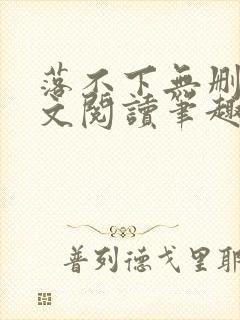 落不下無删
文閱讀筆趣
普列德戈里耶